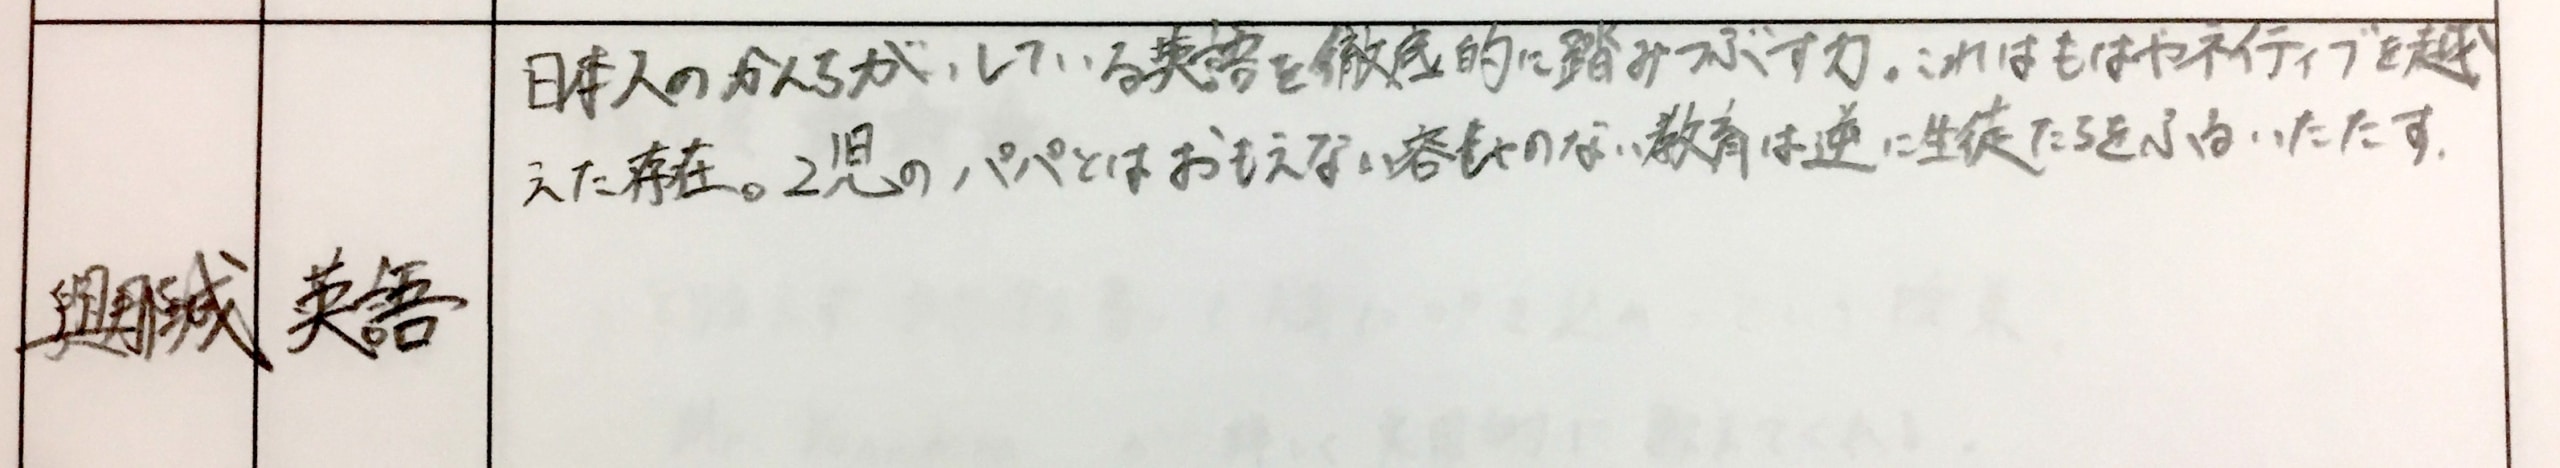 日本人のかんちがいしている英語を徹底的に踏みつぶす力。これはもはやネイティブを越
えた存在。2児のパパとはおもえない容もヤのない教育は逆に生徒たちをふるいたたす.
英語